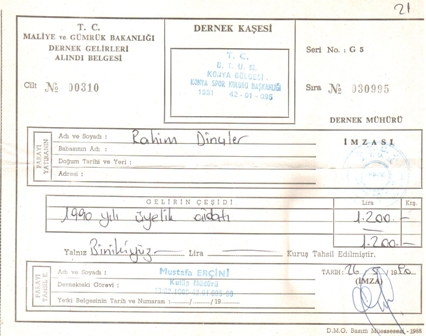 21
T. C.
MALİYE ve GÜMRÜK BAKANLIĞI
DERNEK GELİRLERİ
ALINDI BELGESİ
Cilt № 00310
DERNEK KAŞESİ
T. C.
KONYA GÜLGESİ
KONYA SPOR KOLONU BAŞKANLIĞI
42-01-095
Seri No. : G 5
Sıra № 030995
DERNEK MÜHÜRÜ
İMZASI
PARAYI YATIRANIN
Adı ve Soyadı : Rahim Dinçler
Babasının Adı :
Doğum Tarihi ve Yeri :
Adresi :
GELİRİN ÇEŞİDİ Lira Krş.
1990 yılı üyelik aidatı 1.200 —
1.200 —
Yalnız Binikiyüz Lira Kuruş Tahsil Edilmiştir.
Adı ve Soyadı : Mustafa ERÇİNİ
Dernekteki Görevi :
Yetki Belgesinin Tarih ve Numarası : / / 19
TARİH: 26
(İMZA)
D.M.O. Basım Müessesesi